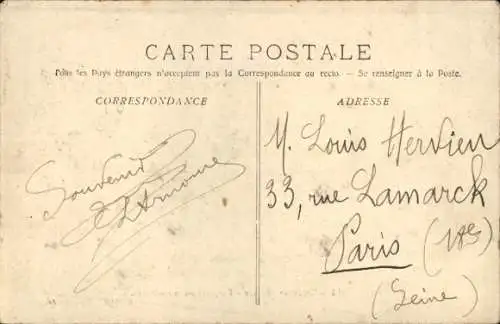 CARTE POSTALE
Tous les Pays étrangers n'acceptent pas la Correspondance au recto. - Se renseigner à la Poste.
CORRESPONDANCE
Souvenir
ADRESSE
M. Louis Hervieu
33, rue Lamarck
Paris (18e)
(Seine)